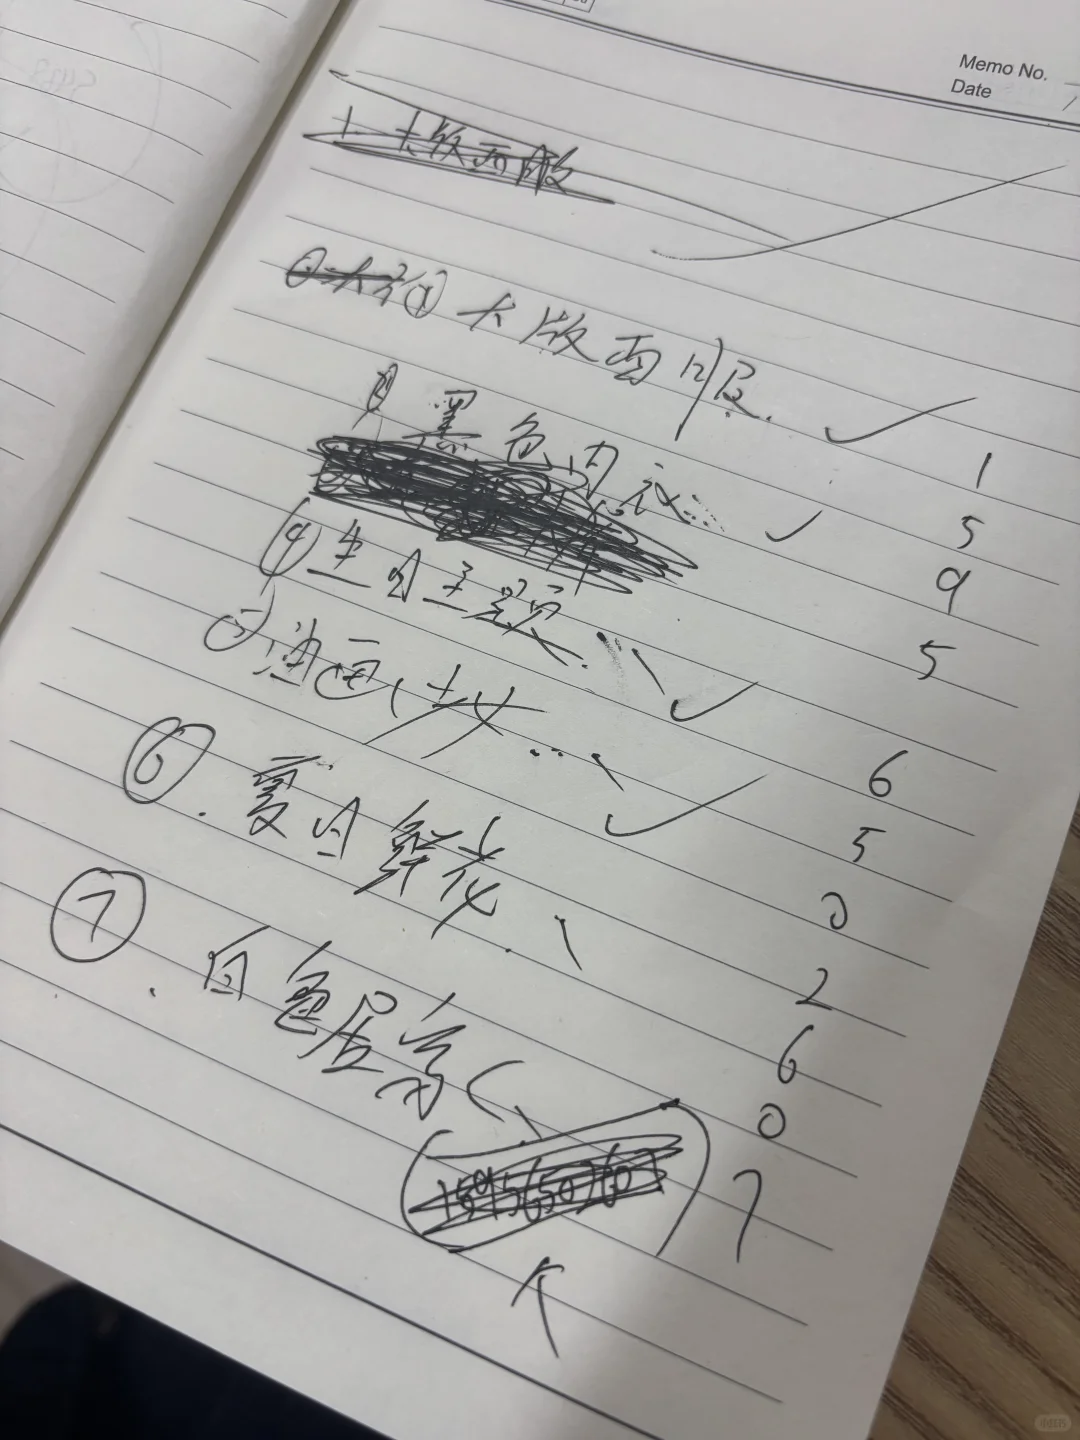 Memo No.
Date
1. 大版西服
① 大版西服.
1
黑色内衣...
5
9
④ 生日主题、
5
⑤ 油画(少女...、
6
5
⑥. 夏日鲜花、
0
2
⑦. 白色居家(、
6
0
7
个
小红书